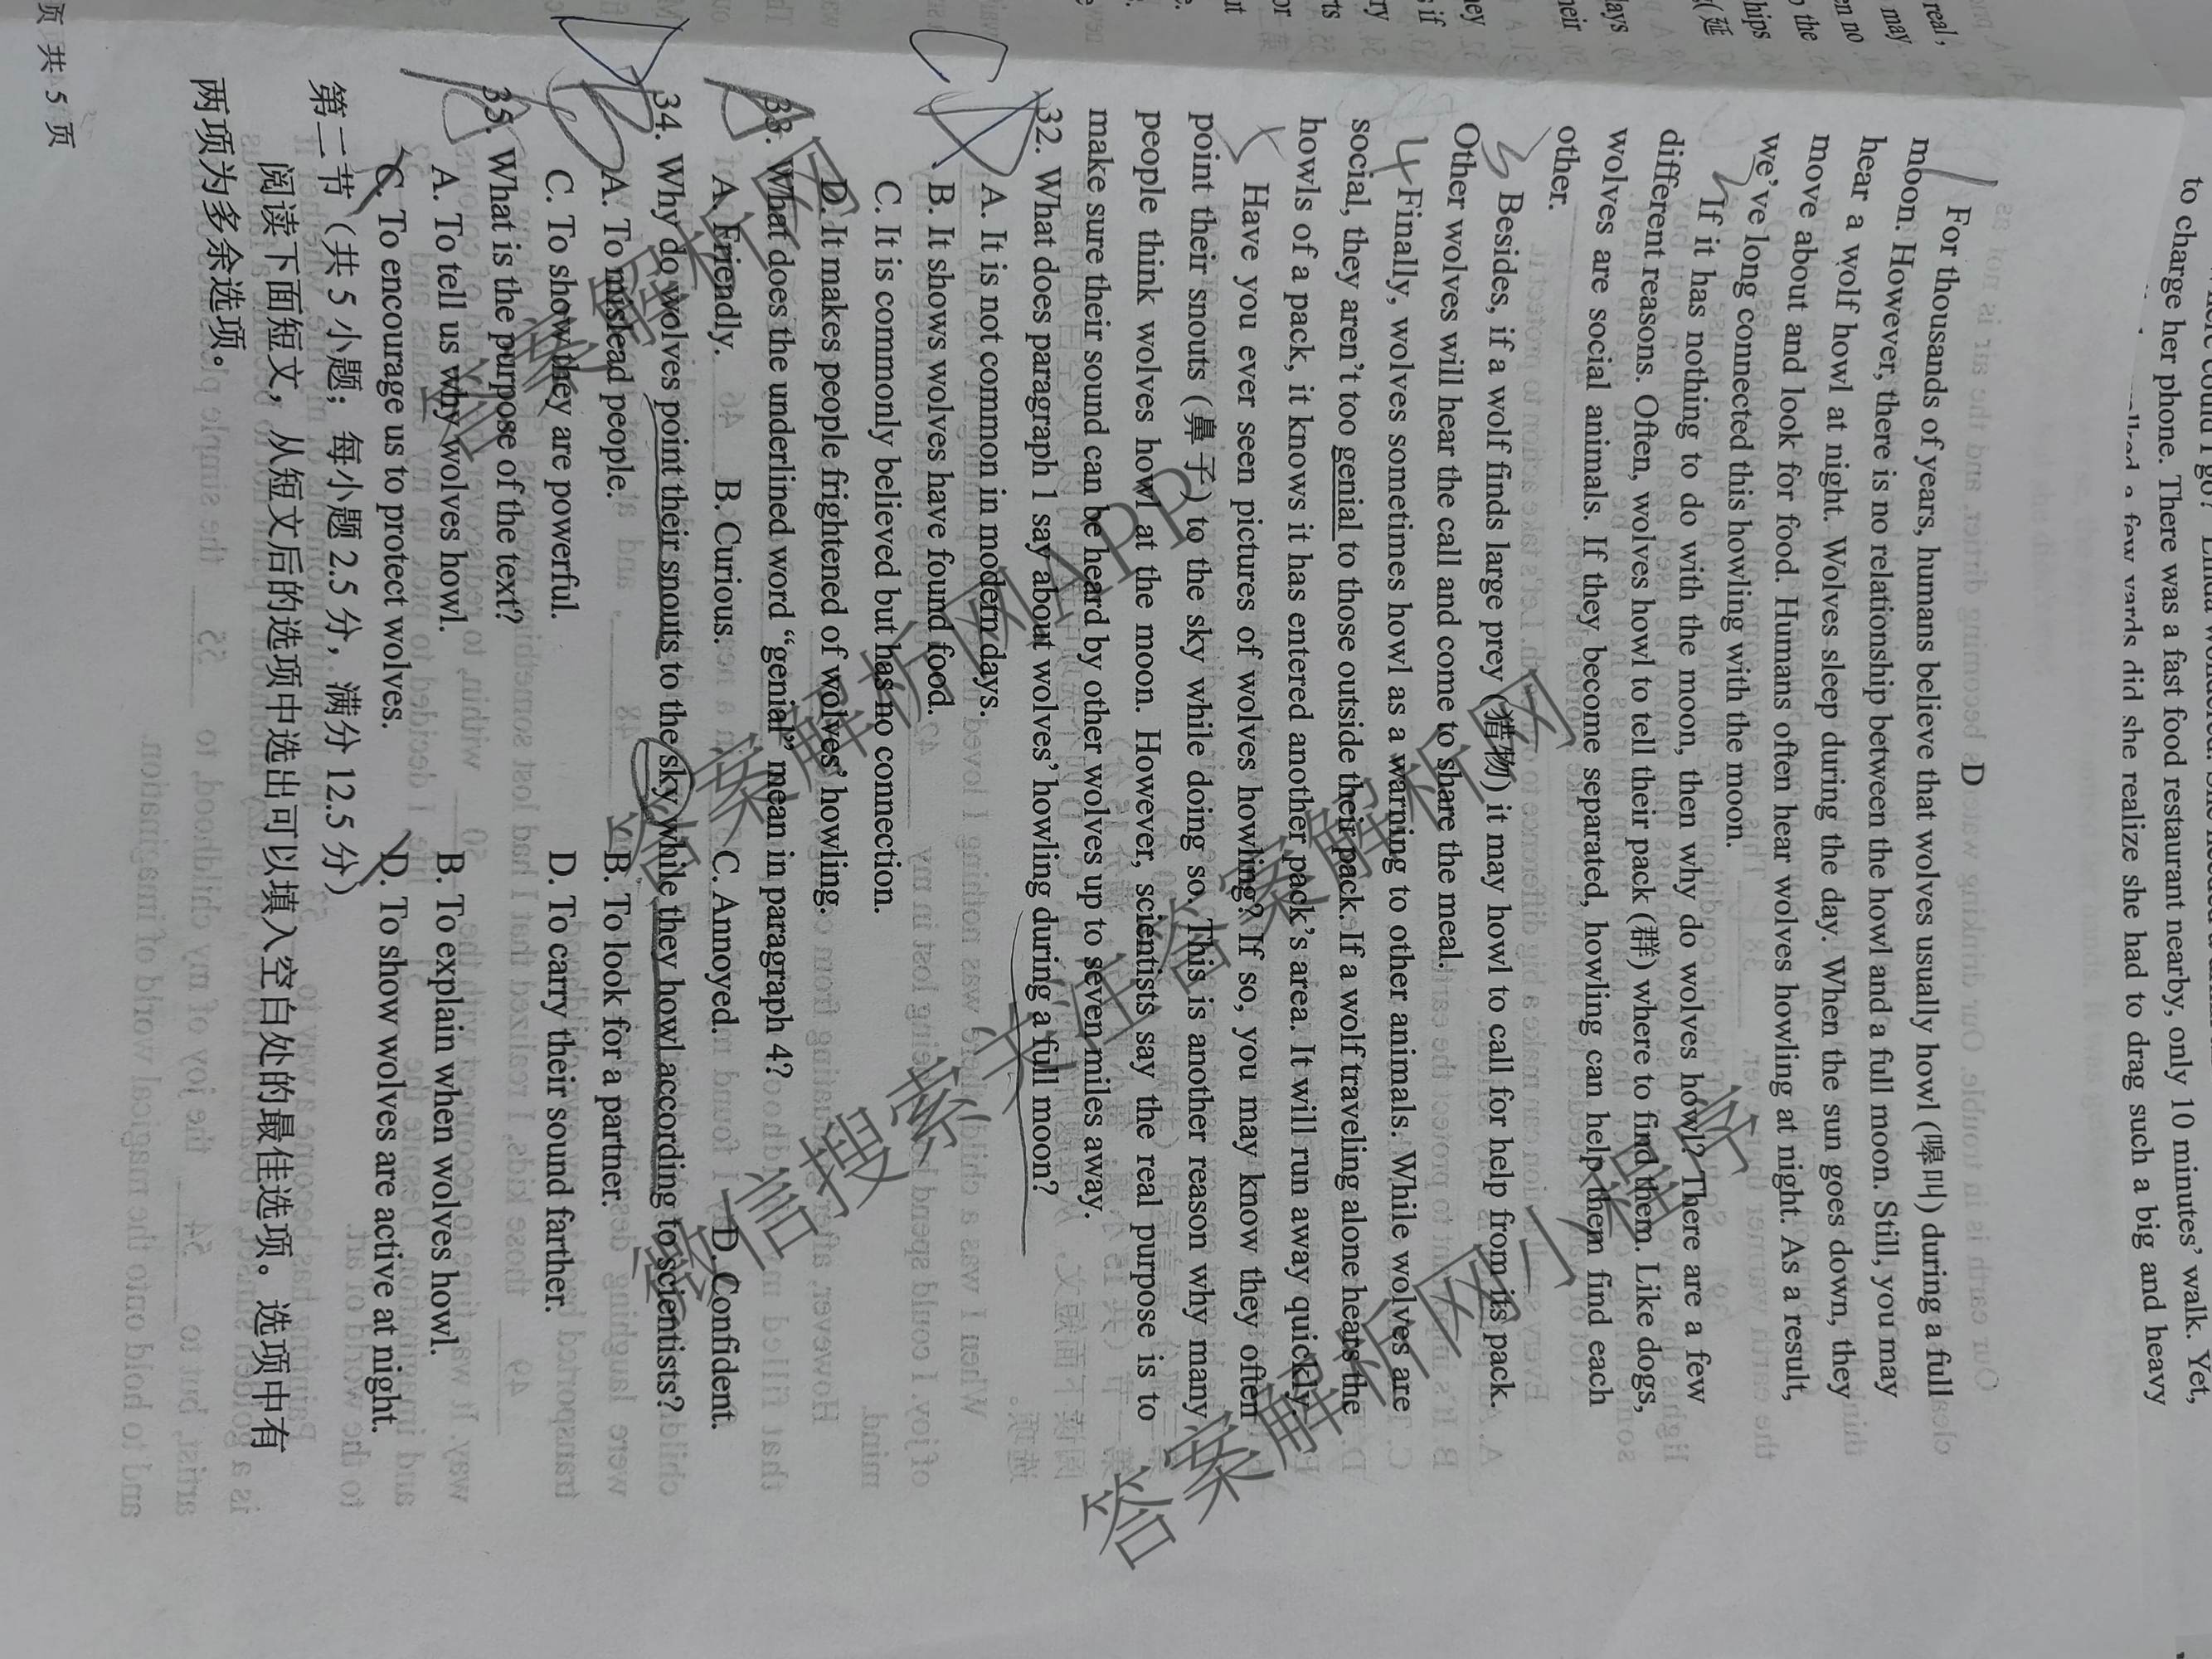 to charge her phone. There was a fast food restaurant nearby, only 10 minutes' walk. Yet,
a few yards did she realize she had to drag such a big and heavy
D
For thousands of years, humans believe that wolves usually howl (嚎叫) during a full
moon. However, there is no relationship between the howl and a full moon. Still, you may
hear a wolf howl at night. Wolves sleep during the day. When the sun goes down, they
move about and look for food. Humans often hear wolves howling at night. As a result,
we've long connected this howling with the moon.
If it has nothing to do with the moon, then why do wolves howl? There are a few
different reasons. Often, wolves howl to tell their pack (群) where to find them. Like dogs,
wolves are social animals. If they become separated, howling can help them find each
other.
Besides, if a wolf finds large prey (猎物) it may howl to call for help from its pack.
Other wolves will hear the call and come to share the meal.
Finally, wolves sometimes howl as a warning to other animals. While wolves are
social, they aren't too genial to those outside their pack. If a wolf traveling alone hears the
howls of a pack, it knows it has entered another pack's area. It will run away quickly.
Have you ever seen pictures of wolves howling? If so, you may know they often
point their snouts (鼻子) to the sky while doing so. This is another reason why many
people think wolves howl at the moon. However, scientists say the real purpose is to
make sure their sound can be heard by other wolves up to seven miles away.
32. What does paragraph 1 say about wolves' howling during a full moon?
A. It is not common in modern days.
B. It shows wolves have found food.
C. It is commonly believed but has no connection.
D. It makes people frightened of wolves' howling.
33. What does the underlined word “genial” mean in paragraph 4?
A. Friendly. B. Curious. C. Annoyed. D. Confident.
34. Why do wolves point their snouts to the sky while they howl according to scientists?
A. To mislead people. B. To look for a partner.
C. To show they are powerful. D. To carry their sound farther.
35. What is the purpose of the text?
A. To tell us why wolves howl. B. To explain when wolves howl.
C. To encourage us to protect wolves. D. To show wolves are active at night.
第二节（共 5 小题；每小题 2.5 分，满分 12.5 分）
阅读下面短文，从短文后的选项中选出可以填入空白处的最佳选项。选项中有
两项为多余选项。
页 共 5 页